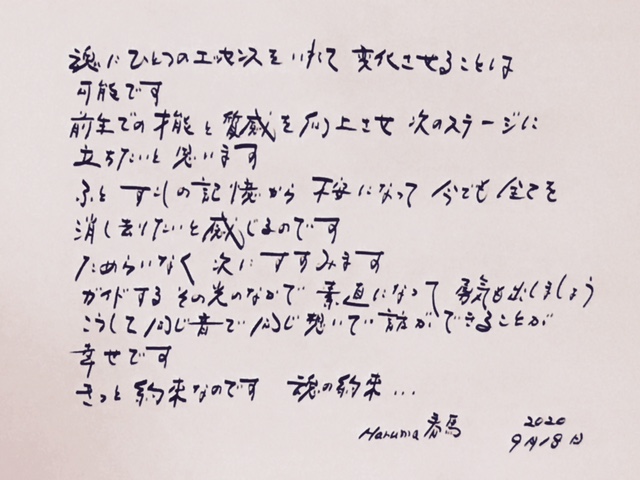 魂にひとつのエッセンスをいれて 変化させることは
可能です
前生での才能と質感を向上させ 次のステージに
立ちたいと思います
ふと すこしの記憶から 不安になって 今でも全てを
消し去りたいと感じるのです
ためらいなく 次にすすみます
ガイドする その光のなかで 素直になって 勇気も出しましょう
こうして同じ音で同じ想いでい 話ができることが
幸せです
きっと約束なのです 魂の約束...
Haruma春馬 2020
9月18日